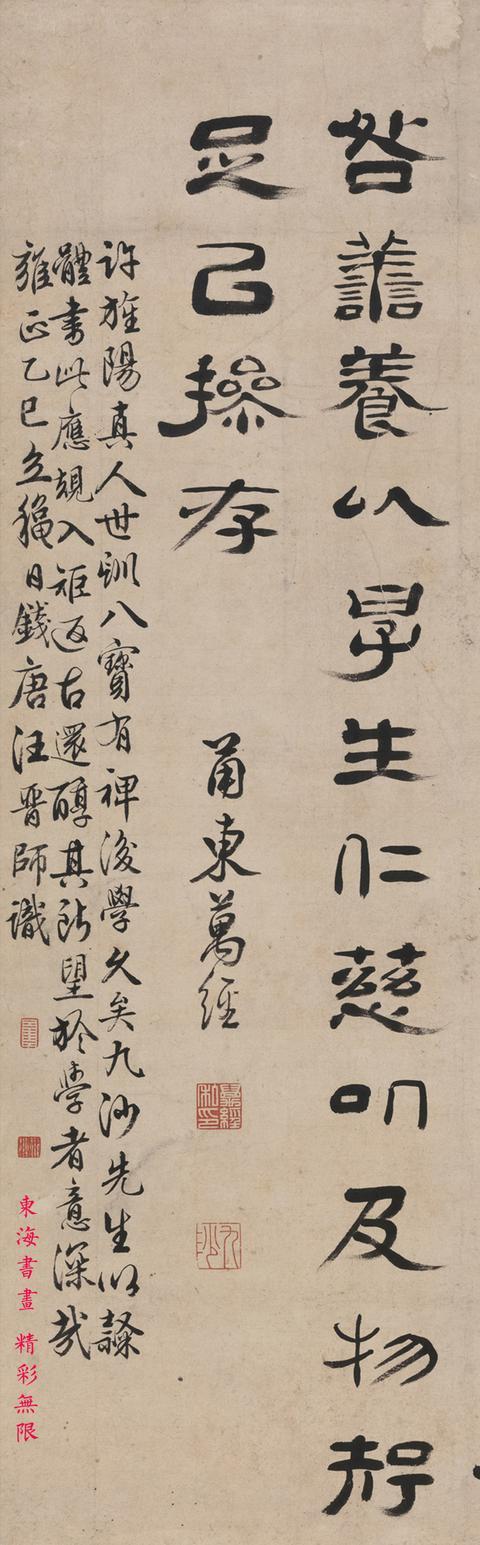 咎譱養以生仁慈及物
足己操存
甬東萬經
萬經私印
九沙
許旌陽真人世訓八寶有裨後學久矣九沙先生以隸
體書此應規入矩返古還醇其所望於學者意深哉
雍正乙巳立穐日錢唐汪晉師識
東海書畫 精彩無限